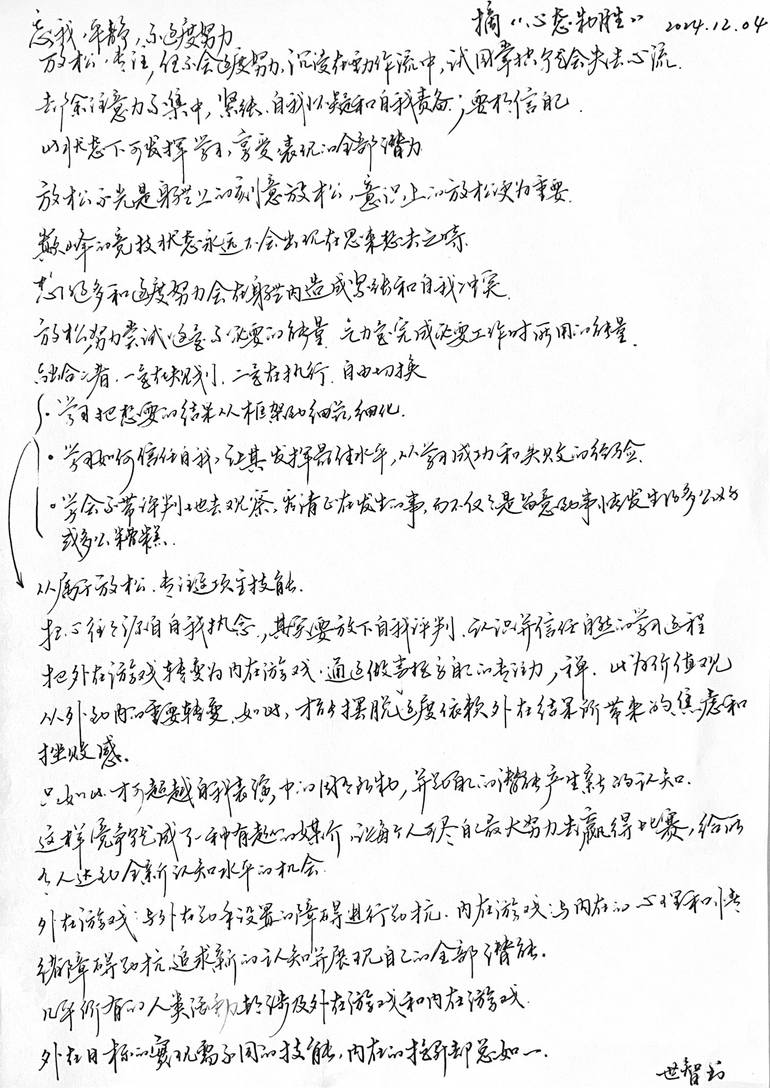 摘《心态制胜》 2024.12.04
忘我,平静,不过度努力
放松,专注,但不会过度努力,沉浸在动作流中,试图掌控它就会失去心流.
去除注意力不集中,紧张,自我怀疑和自我责备;要相信自己.
此状态下可发挥学习,享受表现的全部潜力
放松不光是身体上的刻意放松,意识上的放松更为重要.
巅峰的竞技状态永远不会出现在思来想去之时.
想得过多和过度努力会在身体内造成紧张和自我冲突.
放松,努力尝试这是不必要的能量,气力是完成必要工作时所用的能量.
融合二者,一是在规划,二是在执行.自由切换
·学习把想要的结果从框架到细节,细化.
·学习如何信任自我,让其发挥最佳水平,从学习成功和失败的经验.
·学会不带评判地去观察,看清正在发生的事,而不仅仅是留意到事情发生得多么好
或多么糟糕.
从属于放松.专注这项主技能.
担心往往源自自我执念,其实要放下自我评判.认识并信任自然的学习过程
把外在游戏转变为内在游戏.通过做掌控自己的专注力,禅.此为价值观
从外到内的重要转变.如此,才能摆脱过度依赖外在结果所带来的焦虑和
挫败感.
只如此才可超越自我表演,中的固有执物,并对自己的潜能产生新的认知.
这样竞争就成了一种有趣的媒介,让每个人可尽自己最大努力去赢得比赛,给所
有人达到全新认知水平的机会.
外在游戏:与外在对手设置的障碍进行对抗.内在游戏:与内在的心理和情
绪障碍对抗,追求新的认知并展现自己的全部潜能.
几乎所有的人类活动都涉及外在游戏和内在游戏.
外在目标的实现需不同的技能,内在的掌控却总如一.